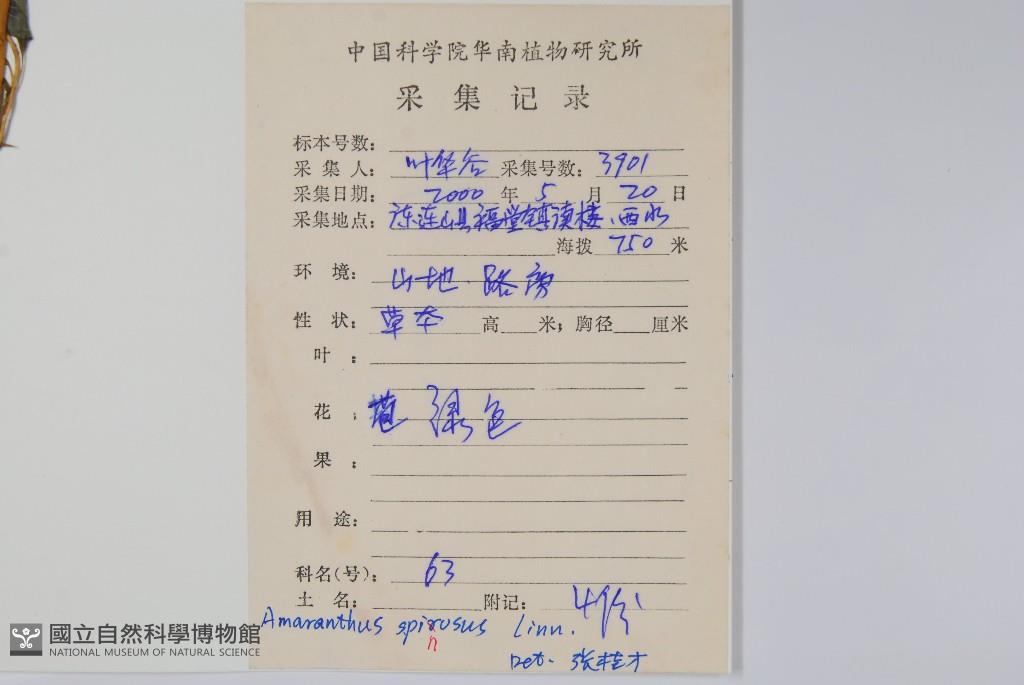 中国科学院华南植物研究所
采集记录
标本号数:
采集人: 叶华谷 采集号数: 3901
采集日期: 2000 年 5 月 20 日
采集地点: 连山县福堂镇 西水
海拨 750 米
环境: 山地.路旁
性状: 草本 高 米; 胸径 厘米
叶:
花: 绿色
果:
用途:
科名(号): 63
土名: 附记: 4份
Amaranthus spinosus Linn.
n
Det. 张桂才
國立自然科學博物館
NATIONAL MUSEUM OF NATURAL SCIENCE